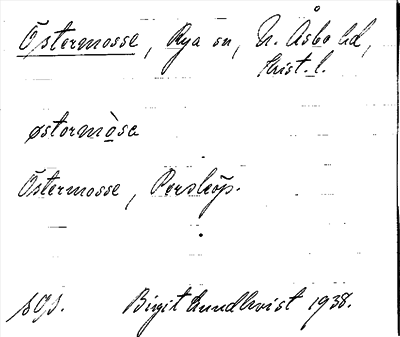 Östermosse, Rya sn, N. Åsbo hd,
Krist. l.
østormòsa
Östermosse, Perstorp.
Birgit Lundkvist 1938.